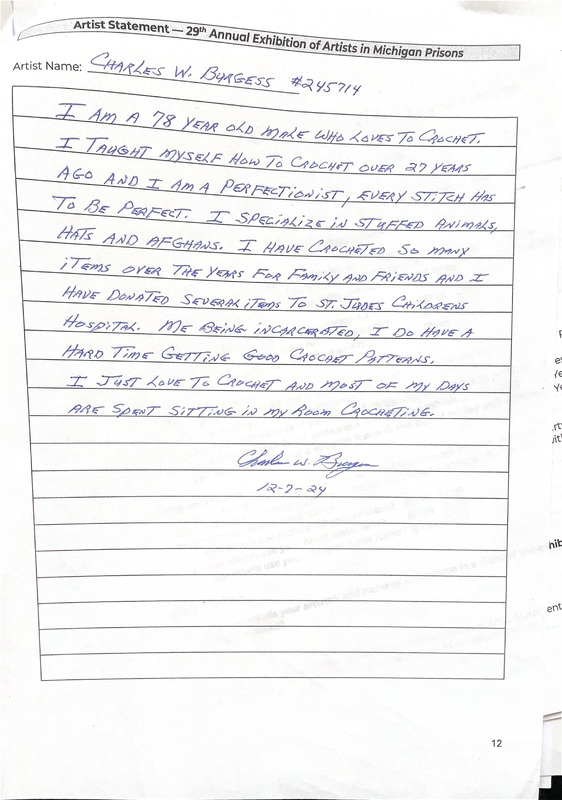 Artist Statement — 29th Annual Exhibition of Artists in Michigan Prisons
Artist Name: CHARLES W. BURGESS #245714
I AM A 78 YEAR OLD MALE WHO LOVES TO CROCHET.
I TAUGHT MYSELF HOW TO CROCHET OVER 27 YEARS
AGO AND I AM A PERFECTIONIST, EVERY STITCH HAS
TO BE PERFECT. I SPECIALIZE IN STUFFED ANIMALS,
HATS AND AFGHANS. I HAVE CROCHETED SO MANY
ITEMS OVER THE YEARS FOR FAMILY AND FRIENDS AND I
HAVE DONATED SEVERAL ITEMS TO ST. JUDES CHILDRENS
HOSPITAL. ME BEING INCARCERATED, I DO HAVE A
HARD TIME GETTING GOOD CROCHET PATTERNS.
I JUST LOVE TO CROCHET AND MOST OF MY DAYS
ARE SPENT SITTING IN MY ROOM CROCHETING.
Charles W. Burgess
12-7-24
12